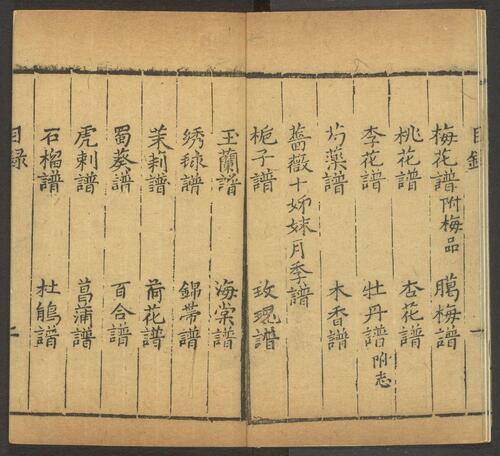 目錄 一
梅花譜附梅品 臈梅譜
桃花譜 杏花譜
李花譜 牡丹譜附志
芍藥譜 木香譜
薔薇十姊妹月季譜
梔子譜 玫瑰譜
玉蘭譜 海棠譜
绣毬譜 錦帶譜
茉莉譜 荷花譜
蜀葵譜 百合譜
虎刺譜 菖蒲譜
石榴譜 杜鵑譜
目錄 二